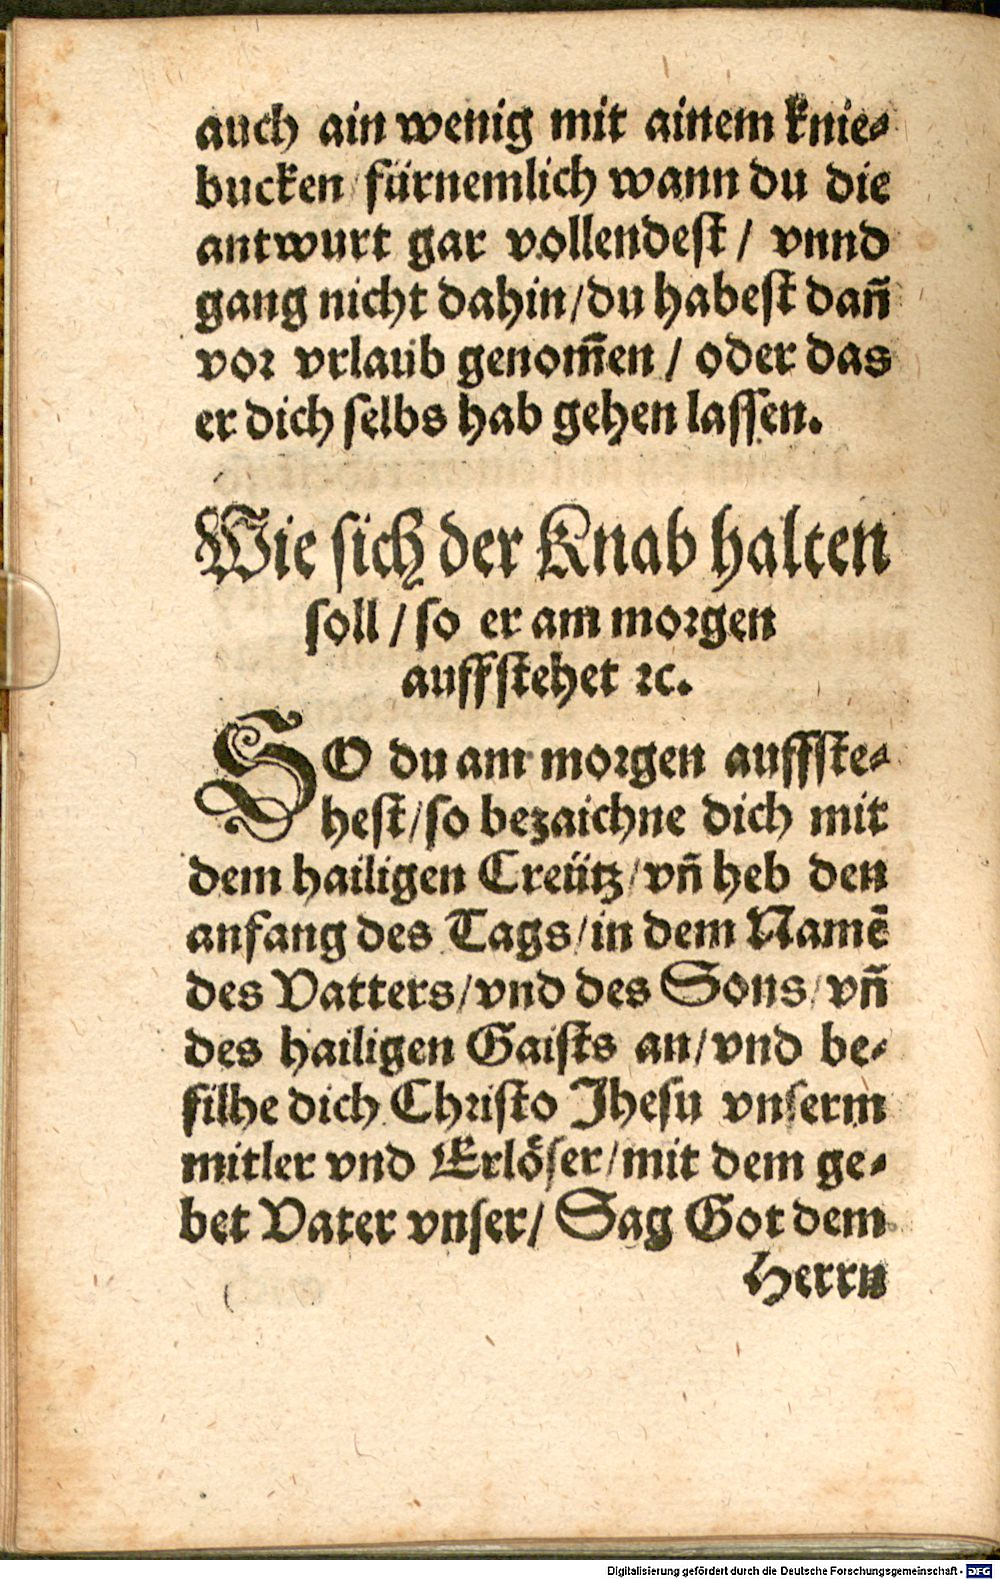 auch ain wenig mit ainem knie-
bucken / fürnemlich wann du die
antwurt gar vollendest / vnnd
gang nicht dahin / du habest dañ
vor vrlaub genom̃en / oder das
er dich selbs hab gehen lassen.
Wie sich der Knab halten
soll / so er am morgen
auffstehet ꝛc.
SO du am morgen auffste-
hest / so bezaichne dich mit
dem hailigen Creütz / vñ heb den
anfang des Tags / in dem Namẽ
des Vatters / vnd des Sons / vñ
des hailigen Gaists an / vnd be-
filhe dich Christo Jhesu vnserm
mitler vnd Erlöser / mit dem ge-
bet Vater vnser / Sag Got dem
Herrn
Digitalisierung gefördert durch die Deutsche Forschungsgemeinschaft - DFG